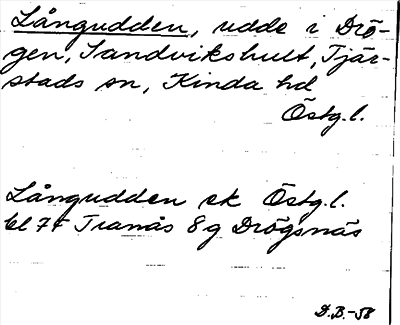 Långudden, udde i Drö-
gen, Sandvikshult, Tjär-
stads sn, Kinda hd
Östg.l.
Långudden ek Östg.l.
bl 7F Tranås 8g Drögsnäs
D.B.-58